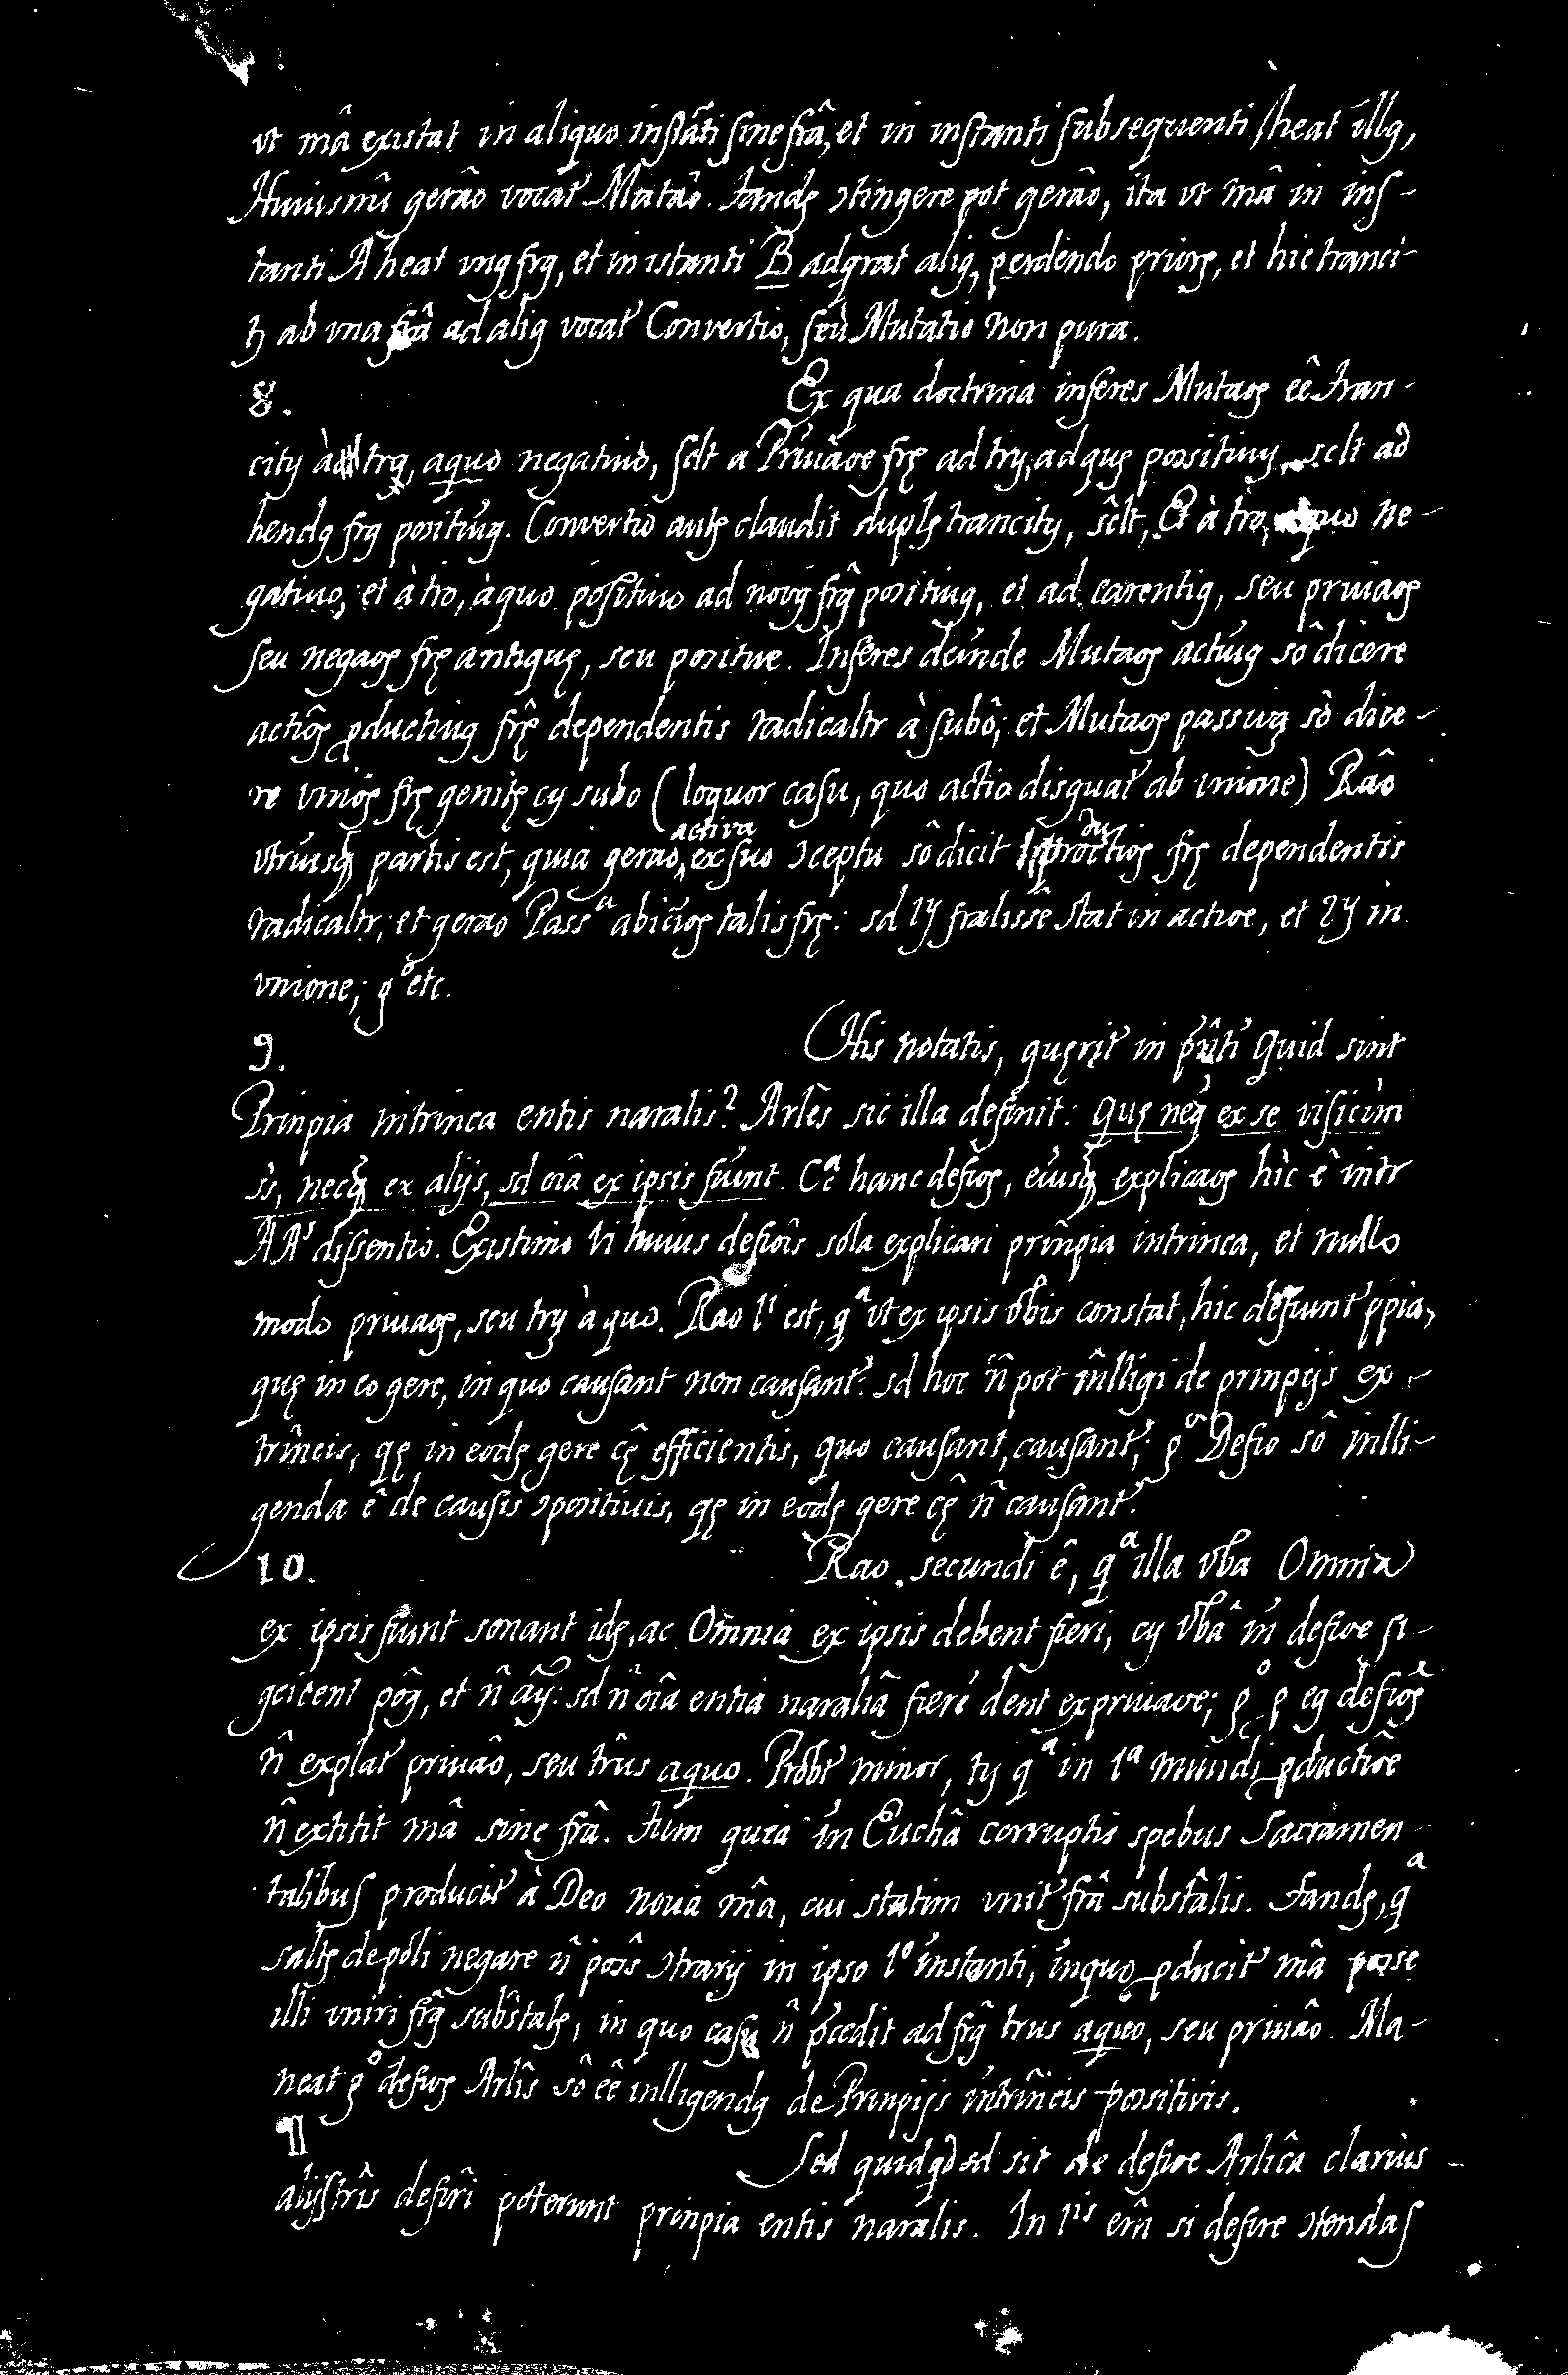 vt mâ existat in aliquo instãti sine frâ, et in instanti subsequenti heat illą,
Huiusmi gerâo vocat' Mutaô. tandę ɔtingere pot gerâo, ita vt mâ in ins-
tanti A heat vną frą, et in istanti B adqrat alią, perdendo priorę, et hic tranci-
tȝ ab vna frâ ad alią vocat' Convertio, seu Mutatio non pura.
8. Ex qua doctrina inferes Mutaoę eê tran-
city à trą, aquo negatiuo, sclt a Priuãoe frę ad try, ad quę possitiuy, sclt ad
hendą frą positiuą. Convertio autę claudit duplę trancity, sclt, Et à tro, aquo ne-
gatiuo, et à tro, àquo possitiuo ad nouą frą positiuą, et ad carentią, seu priuaoę
seu negaoę frę antiquę, seu positiue. Inferes deinde Mutaoę actiuą sô dicere
actiôę pductiuą frę dependentis radicaltr à subô; et Mutaoę passiuą sô dice-
re vnioę frę genitę cy subo (loquor casu, quo actio disguat' ab vnione) Raô
vtriusq partis est, quia gerao activa, ex suo ɔceptu sô dicit productioę frę dependentis
radicaltr; et gerao Passª abicioę talis frę: sd 1y fralisse stat in actioe, et 2y in
vnione; gº etc.
9. His notatis, quęrit' in prîti Quid sint
Prinpia intrinca entis naralis? Arlês sic illa definit: Quę neq ex se visicim
s, necq ex alijs, sd oiâ ex ipsis fiunt. Cª hanc defioę, eiusq explicaoę hic ê intr
AA' dissentio. Existimo vi huius defiois sola explicari prinpia intrinca, et nullo
modo priuaoę, seu try à quo. Rao 1ⁱ est, qª vt ex ipsis vbis constat, hic defiunt' ppia,
quę in eo gere, in quo causant non causant': sd hoc ñ pot inlligi de prinpijs ex-
trincis, qę in eodę gere cę efficientis, quo causant, causant'; gº Defio sô inlli-
genda ê de causis ɔpositiuis, qę in eodę gere cę ñ causant'.
10. Rao secundi ê, qª illa vba Omnia
ex ipsis fiunt sonant idę, ac Omnia ex ipsis debent fieri, cy vba in defioe si-
gcicent poą, et ñ ay: sd ñ oiâ entia naraliâ fieri dent ex priuaoe; gº p eą defioę
ñ explat' priuâo, seu trus aquo. Probt' minor, ty qª in 1ª mundi pductiôe
ñ extitit mâ sine frâ. tum quia in Euchâ corruptis spebus Sacramen-
talibus producit' à Deo noua mâ, cui statim vnit' frâ substâlis. tandę, qª
saltę de poli negare ñ poss ɔtrarij in ipso 1º instanti, inquo pducit' mâ posse
illi vniri frą substalę, in quo casu ñ pcedit ad frą trus aquo, seu priuâo. Ma-
neat gº defioę Arlis sô eê inlligendą de Prinpijs intrincis possitivis.
11 Sed quidqd sit de defioe Arlicâ clarius
alijstris definri poterunt prinpia entis naralis. In 1ⁱˢ erâ si defire ɔtendas